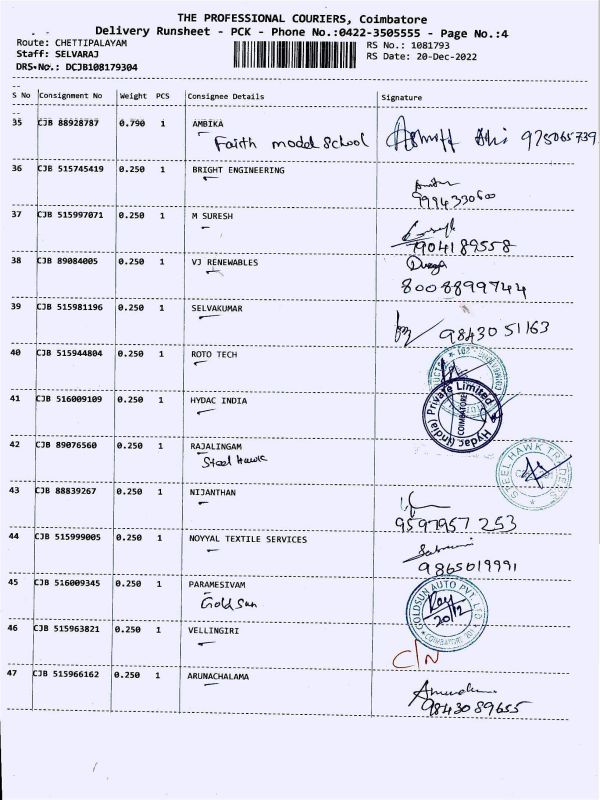 THE PROFESSIONAL COURIERS, Coimbatore
Delivery Runsheet - PCK - Phone No.:0422-3505555 - Page No.:4
Route: CHETTIPALAYAM RS No.: 1081793
Staff: SELVARAJ RS Date: 20-Dec-2022
DRS.No.: DCJB108179304
S No Consignment No Weight PCS Consignee Details Signature
35 CJB 88928787 0.790 1 AMBIKA
Faith model School
36 CJB 515745419 0.250 1 BRIGHT ENGINEERING
9994330600
37 CJB 515997071 0.250 1 M SURESH
7904189558
38 CJB 89084005 0.250 1 VJ RENEWABLES Durga
8008899744
39 CJB 515981196 0.250 1 SELVAKUMAR
9843051163
40 CJB 515944804 0.250 1 ROTO TECH
41 CJB 516009109 0.250 1 HYDAC INDIA Hydac (India) Private Limited COIMBATORE
42 CJB 89076560 0.250 1 RAJALINGAM
Steel Hawk STEEL HAWK TRADERS
43 CJB 88839267 0.250 1 NIJANTHAN
9597957 253
44 CJB 515999005 0.250 1 NOYYAL TEXTILE SERVICES
9865019991
45 CJB 516009345 0.250 1 PARAMESIVAM
Gold Sun GOLDSUN AUTO PVT. LTD. COIMBATORE 20/12
46 CJB 515963821 0.250 1 VELLINGIRI
C/N
47 CJB 515966162 0.250 1 ARUNACHALAMA
9843089655